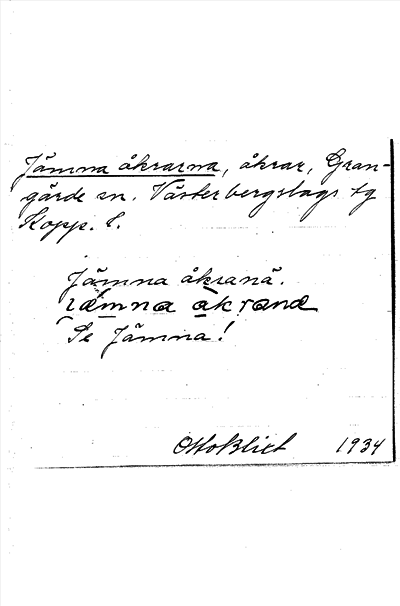 Jämna åkrarna, åkrar, Gran-
gärde sn. Västerbergslags tg
Kopp. l.
Jämna åkranä.
jämna åkrana
Se Jämna!
Otto Blixt 1934